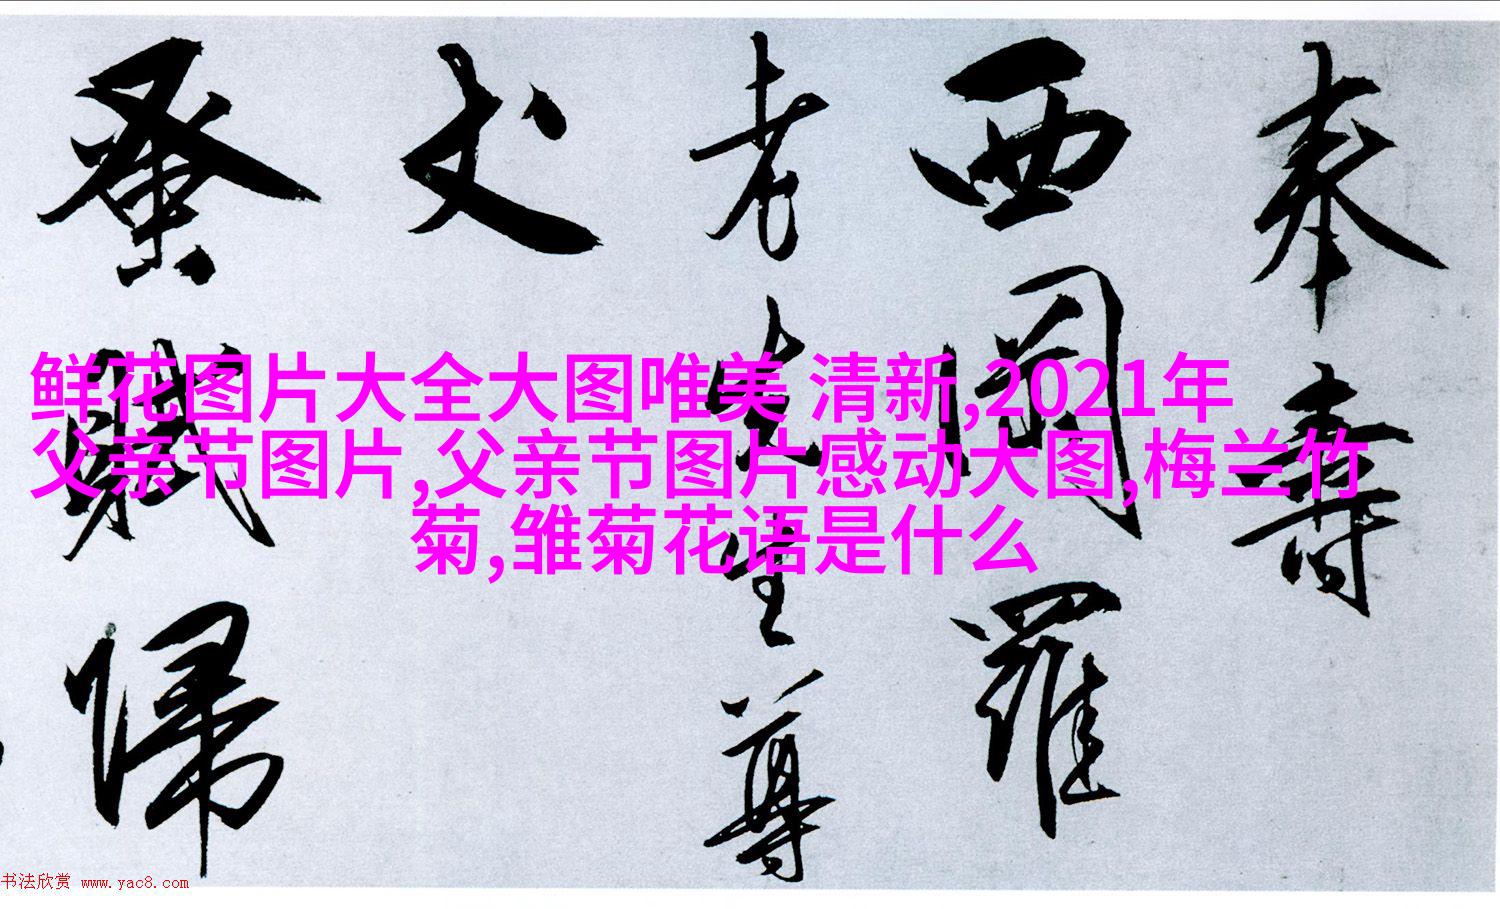 奉壽
西羅
老先生尊
丈
蚤賦歸
鲜花图片大全大图唯美 清新,2021年
父亲节图片,父亲节图片感动大图,梅兰竹
菊,雏菊花语是什么
书法欣赏 www.yac8.com